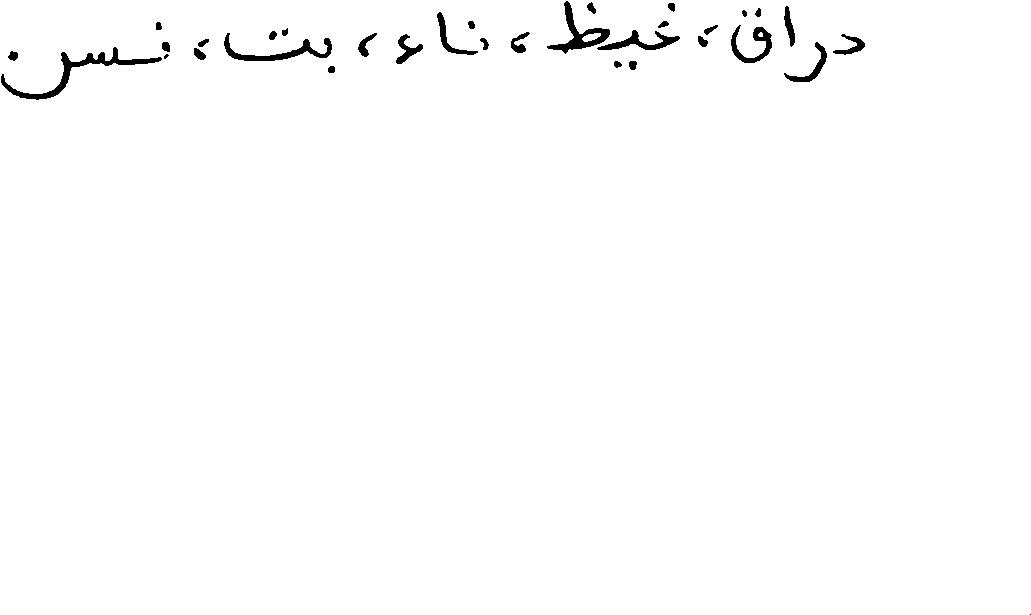 دراق، غيظ، ناء، بت، نسن